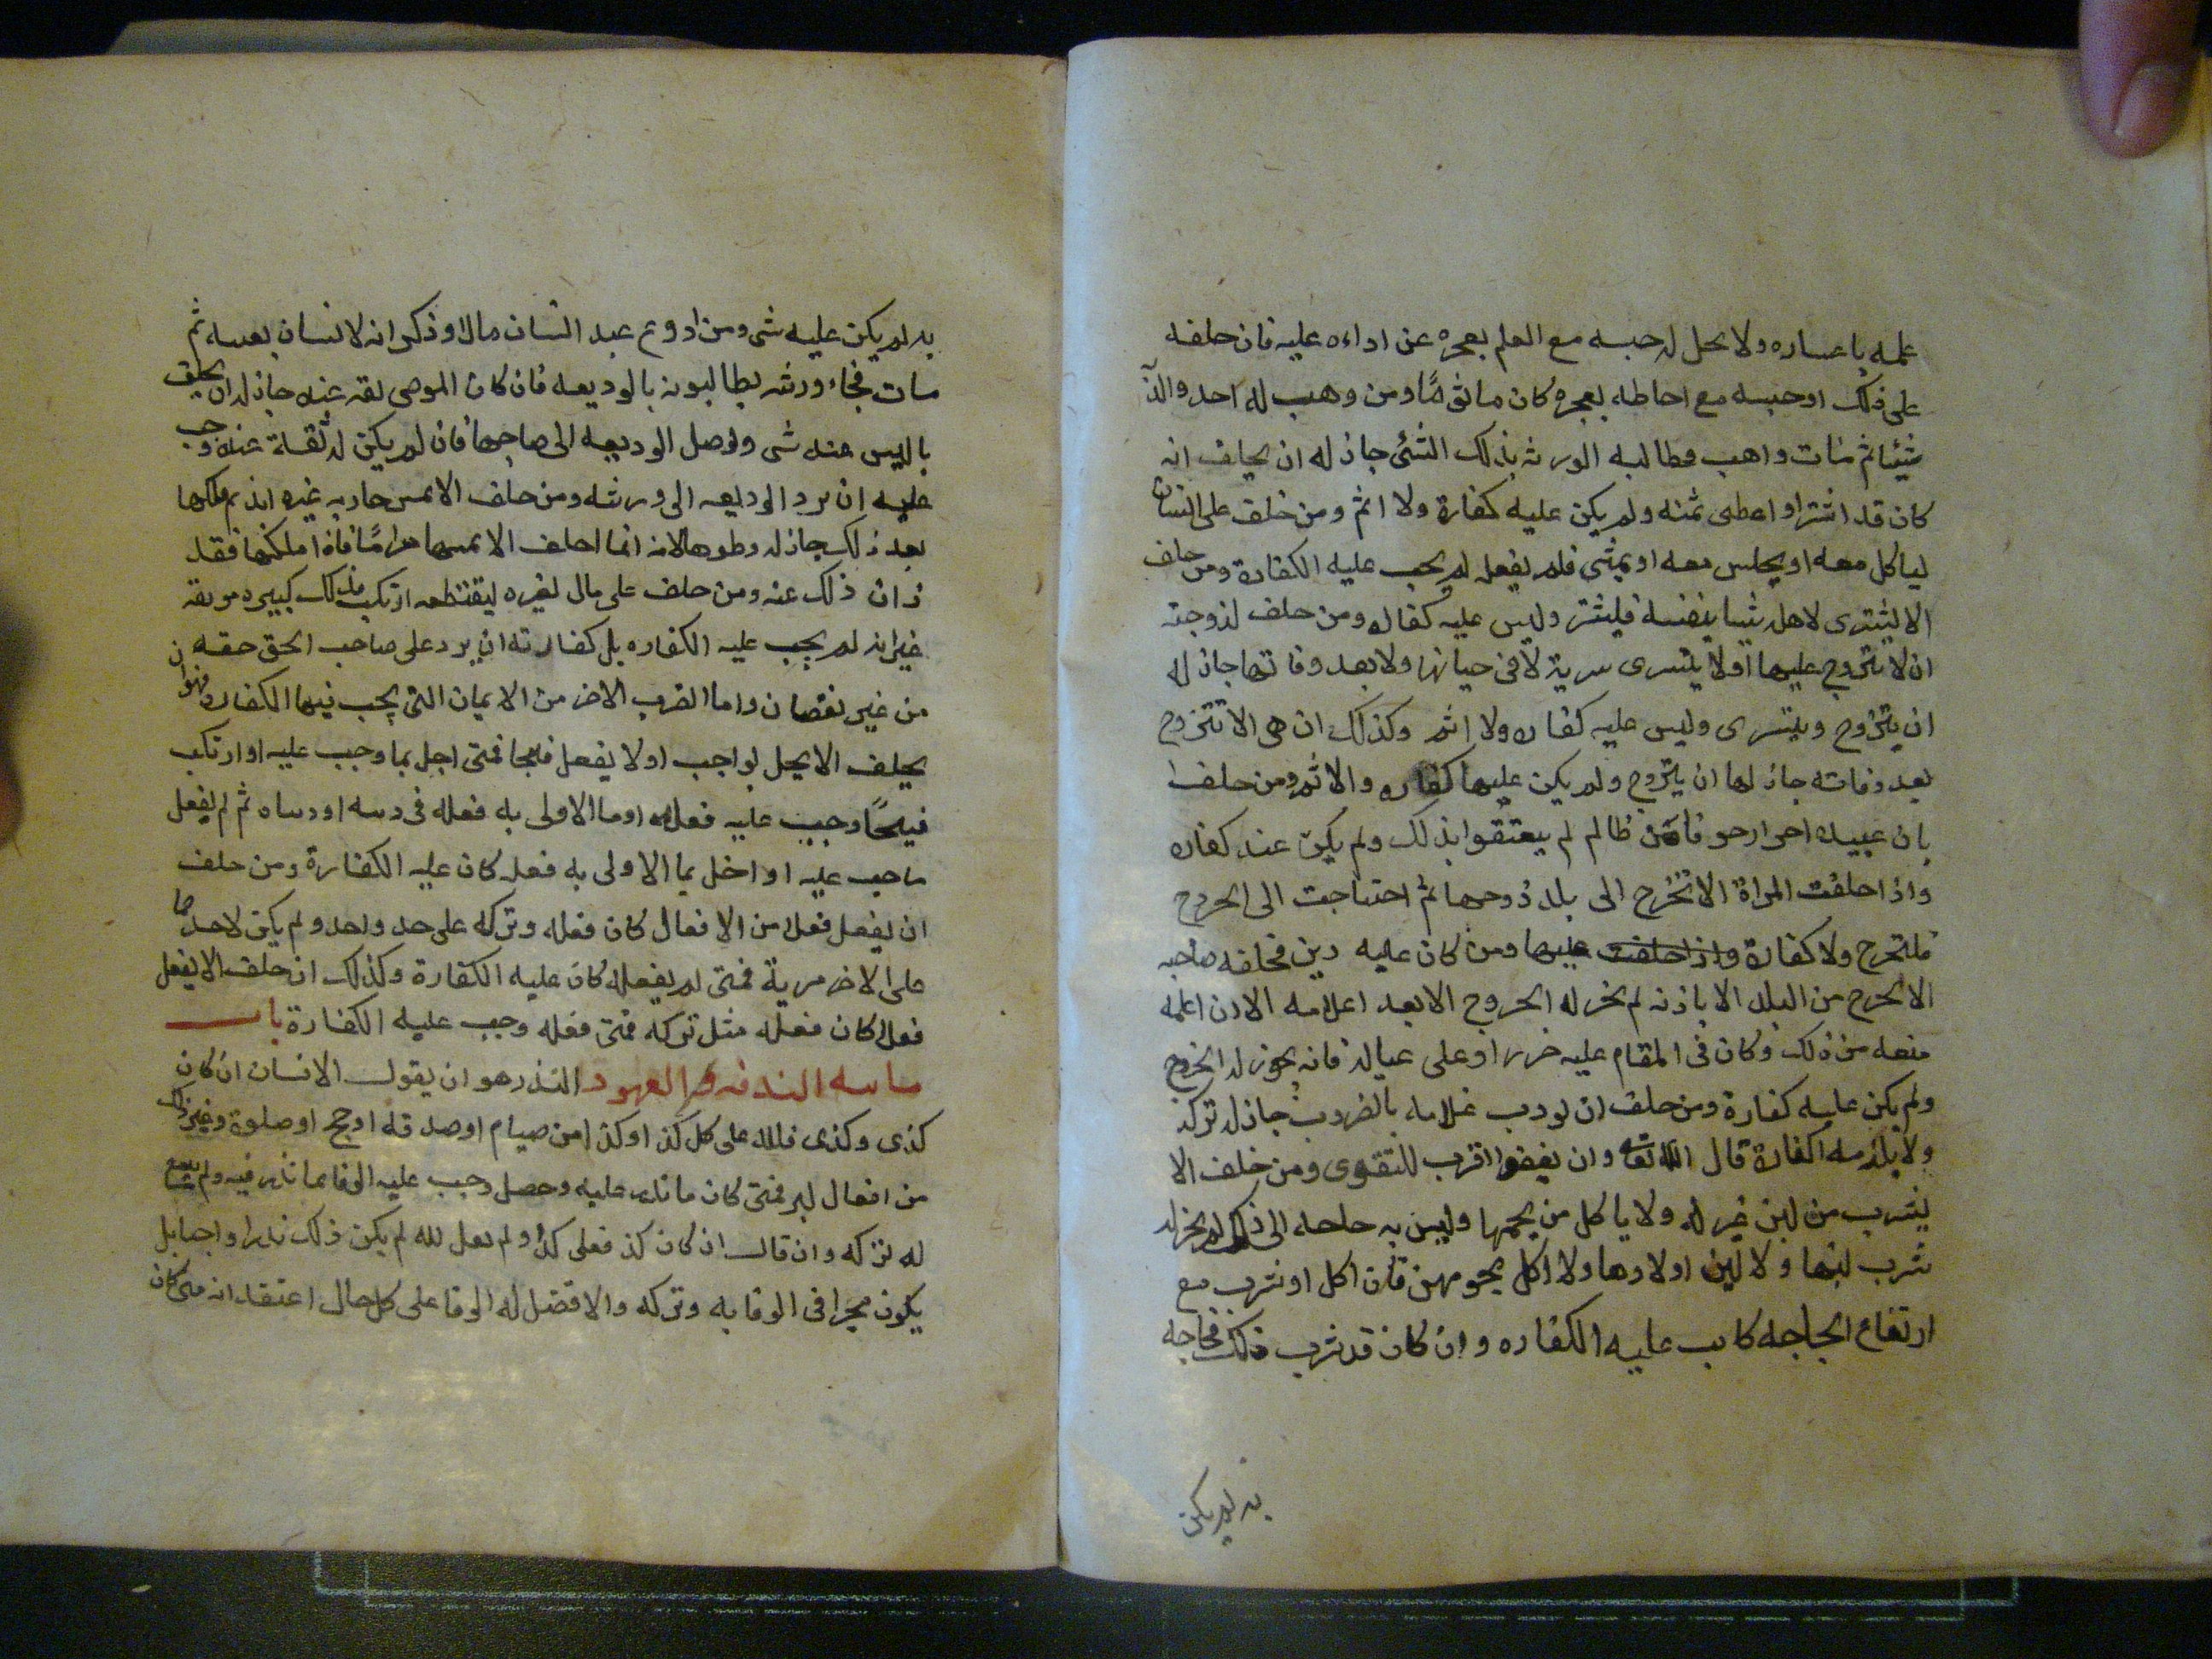 علمه باعساره ولا يحل له حبسه مع العلم بعجزه عن اداءه عليه فان حلفه
على ذلك او حبسه مع احاطه بعجزه كان ماثومًا ومن وهب له احد والديه
شيئا ثم مات واهب وطالبه الورثه بذلك الشئ جاز له ان يحلف انه
كان قد اشترا واعطى ثمنه ولم يكن عليه كفارة ولا اثم ومن حلف على انسان
لياكل معه او يجلس معه او يمشى فلم يفعل لم يجب عليه الكفارة ومن حلف
الا يشترى لاهله شيا بنفسه فليشتر وليس عليه كفاره ومن حلف لزوجته
ان لا يتزوج عليها او لا يتسرى سرية لا فى حياتها ولا بعد وفاتها جاز له
ان يتزوج ويتسرى وليس عليه كفاره ولا اثم وكذلك ان هى الا تتزوج
بعد وفاته جاز لها ان يتزوج ولم يكن عليها كفاره والا ثم ومن حلف
بان عبيده احرار خوفا من ظالم لم يعتقوا بذلك ولم يكن عند كفاره
واذا حلفت المراة الا تخرج الى بلد زوجها ثم احتاجت الى الخروج
فلتخرج ولا كفارة واذا حلفت عليها ومن كان عليه دين فحلفه صاحبه
الا يخرج من البلد الا باذنه لم يجز له الخروج الا بعد اعلامه الا ان اعلمه
منعه من ذلك وكان فى المقام عليه ضرر او على عياله فانه يجوز له الخروج
ولم يكن عليه كفارة ومن حلف ان يودب غلامه بالضرب جاز له تركه
ولا يلزمه الكفارة قال الله تعالى وان يعفوا اقرب للتقوى ومن حلف الا
يشرب من لبن غير له ولا ياكل من لحمها وليس به حاجه الى ذلك لم يجز له
شرب لبنها ولا لبن اولادها ولا اكل لحومهن فان اكل او شرب مع
ارتفاع الحاجه كانت عليه الكفاره وان كان قد شرب ذلك لحاجه
به لم يكن
به لم يكن عليه شى ومن اودع عبد انسان مالا وذكر انه لانسان بعينه ثم
مات فجاء ورثه يطالبونه بالوديعه فان كان الموصى ثقه عنده جاز له ان يحلف
بان ليس عنده شى ويوصل الوديعه الى صاحبها فان لم يكن له ثقة عنده وجب
عليه ان يرد الوديعه الى ورثته ومن حلف الا يمس جاريه غيره ابدا ثم ملكها
بعد ذلك جاز له وطوها لانه انما احلف الا يمسها حرامًا فاذا ملكها فقد
زان ذلك عنه ومن حلف على مال لغيره ليقتطعه ارتكب بذلك كبيره موبقه
غير انه لم يجب عليه الكفاره بل كفارته ان يرد على صاحب الحق حقه
من غير نقصان واما الضرب الاخر من الايمان التى يجب فيها الكفاره فهو ان
يحلف الا يخل بواجب او لا يفعل قبيحا فمتى اخل بما وجب عليه او ارتكب
قبيحًا وجب عليه فعله او ما الاولى به فعله فى دينه او دنياه ثم لم يفعل
ما وجب عليه او اخل بما الاولى به فعله كان عليه الكفارة ومن حلف
ان يفعل فعلا من الافعال كان فعله وتركه على حد واحد ولم يكن لاحدهما
على الاخر مزية فمتى لم يفعله كان عليه الكفارة وكذلك ان حلف الا يفعل
فعلا كان فعله مثل تركه فمتى فعله وجب عليه الكفارة باب
ماهيه النذور والعهود النذر هو ان يقول الانسان ان كان
كذى وكذى فلله على كل كذ او كذا من صيام او صدقه او حج او صلوة وغير ذلك
من افعال البر فمتى كان ما نذر عليه وحصل وجب عليه الوفا بما نذر فيه ولم يسع
له تركه وان قال ان كان كذ فعلى كذا ولم يقل لله لم يكن ذلك نذرا واجبا بل
يكون مخيرا فى الوفا به وتركه والافضل له الوفا على كل حال اعتقد انه متى كان